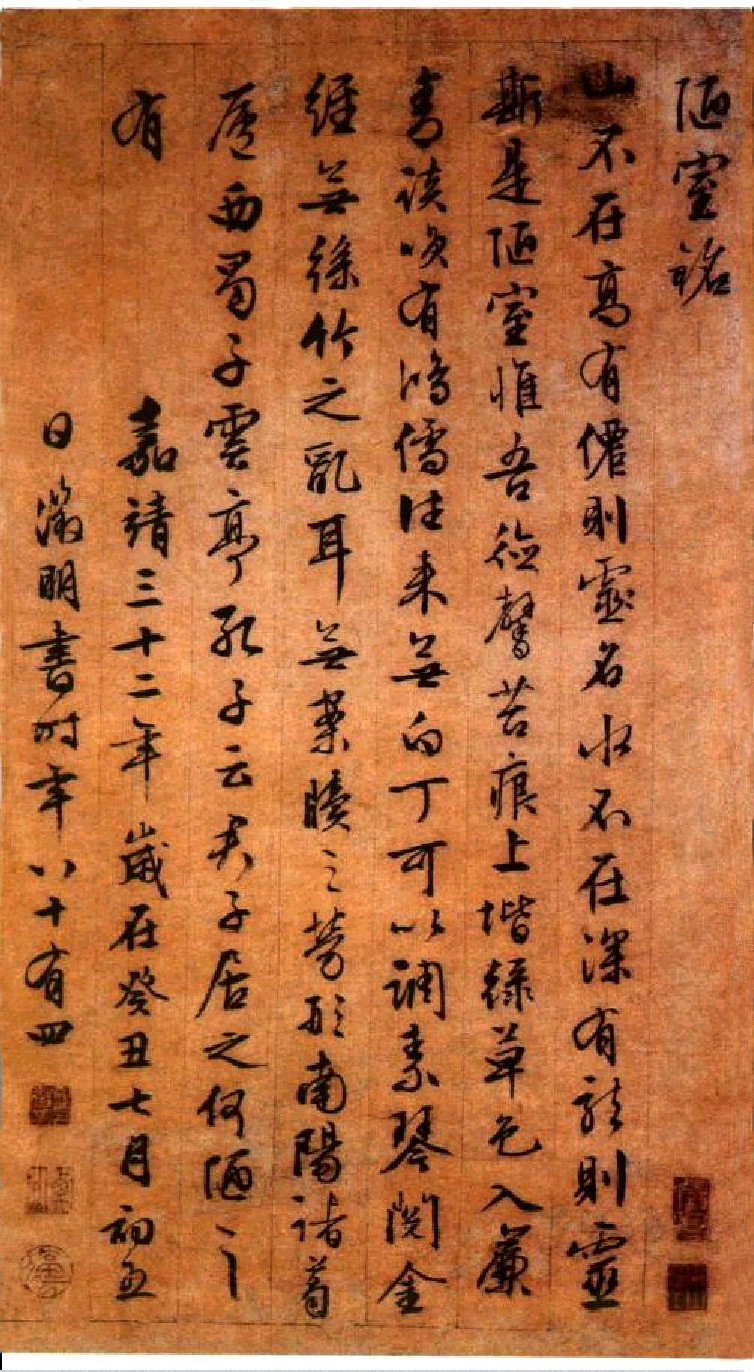 陋室銘
山不在高有僊則靈名水不在深有龍則靈
斯是陋室惟吾德馨苔痕上堦綠草色入簾
青談咲有鴻儒往来無白丁可以調素琴閱金
經無絲竹之亂耳無案牘之勞形南陽諸葛
廬西蜀子雲亭孔子云君子居之何陋之
有　嘉靖三十二年歲在癸丑七月初五
日徵明書時年八十有四